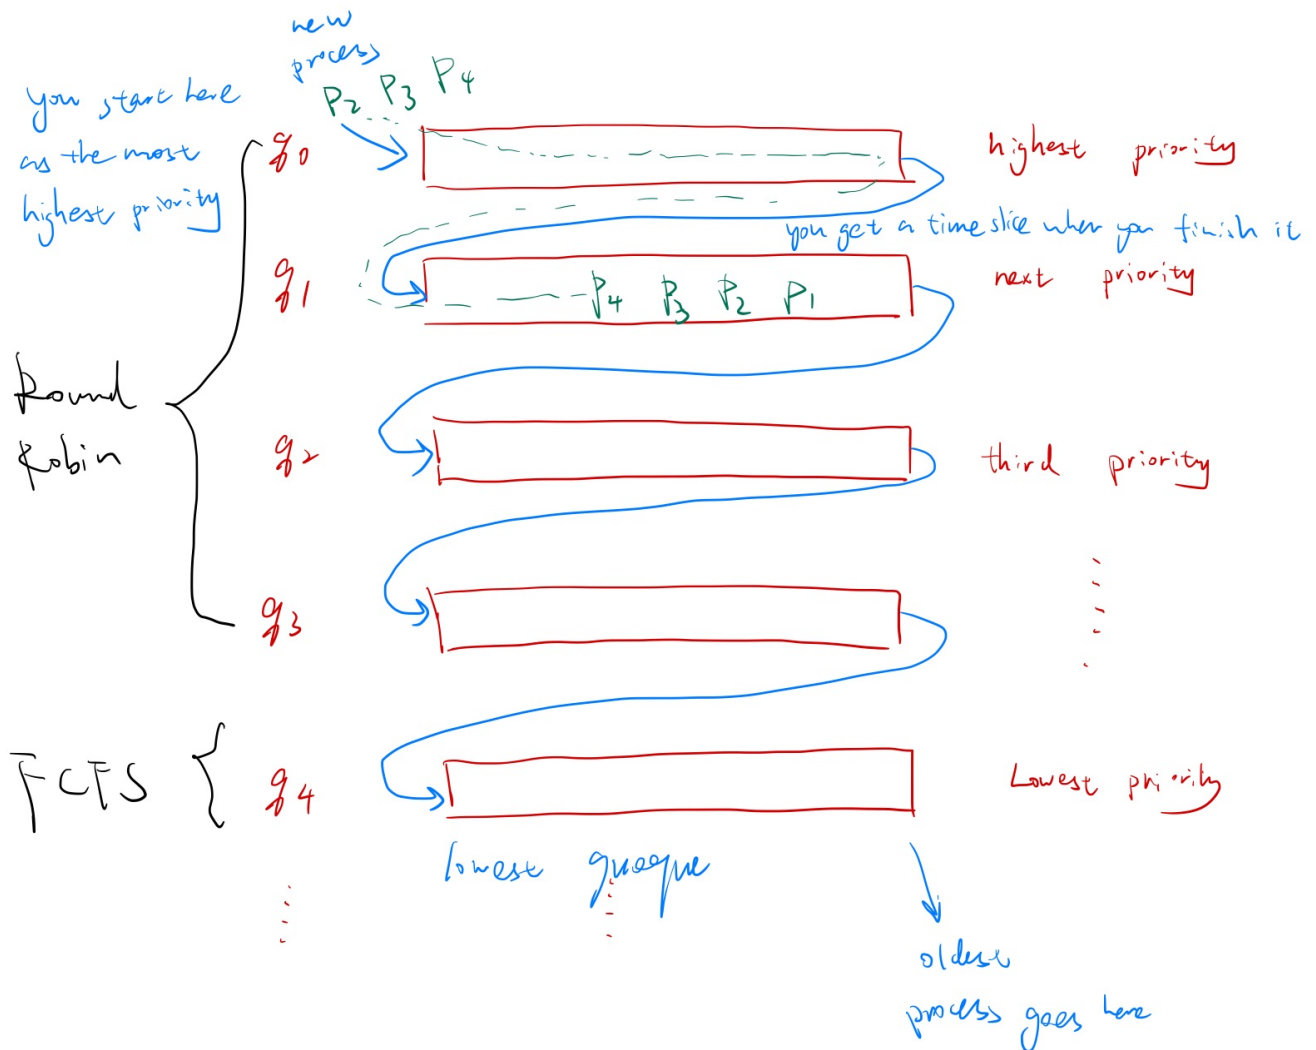 new
process
P2 P3 P4
you start here
as the most
highest priority
q0
highest priority
you get a time slice when you finish it
q1
P4 P3 P2 P1
next priority
Round
Robin
q2
third priority
q3
FCFS
q4
Lowest priority
lowest
oldest
process goes here